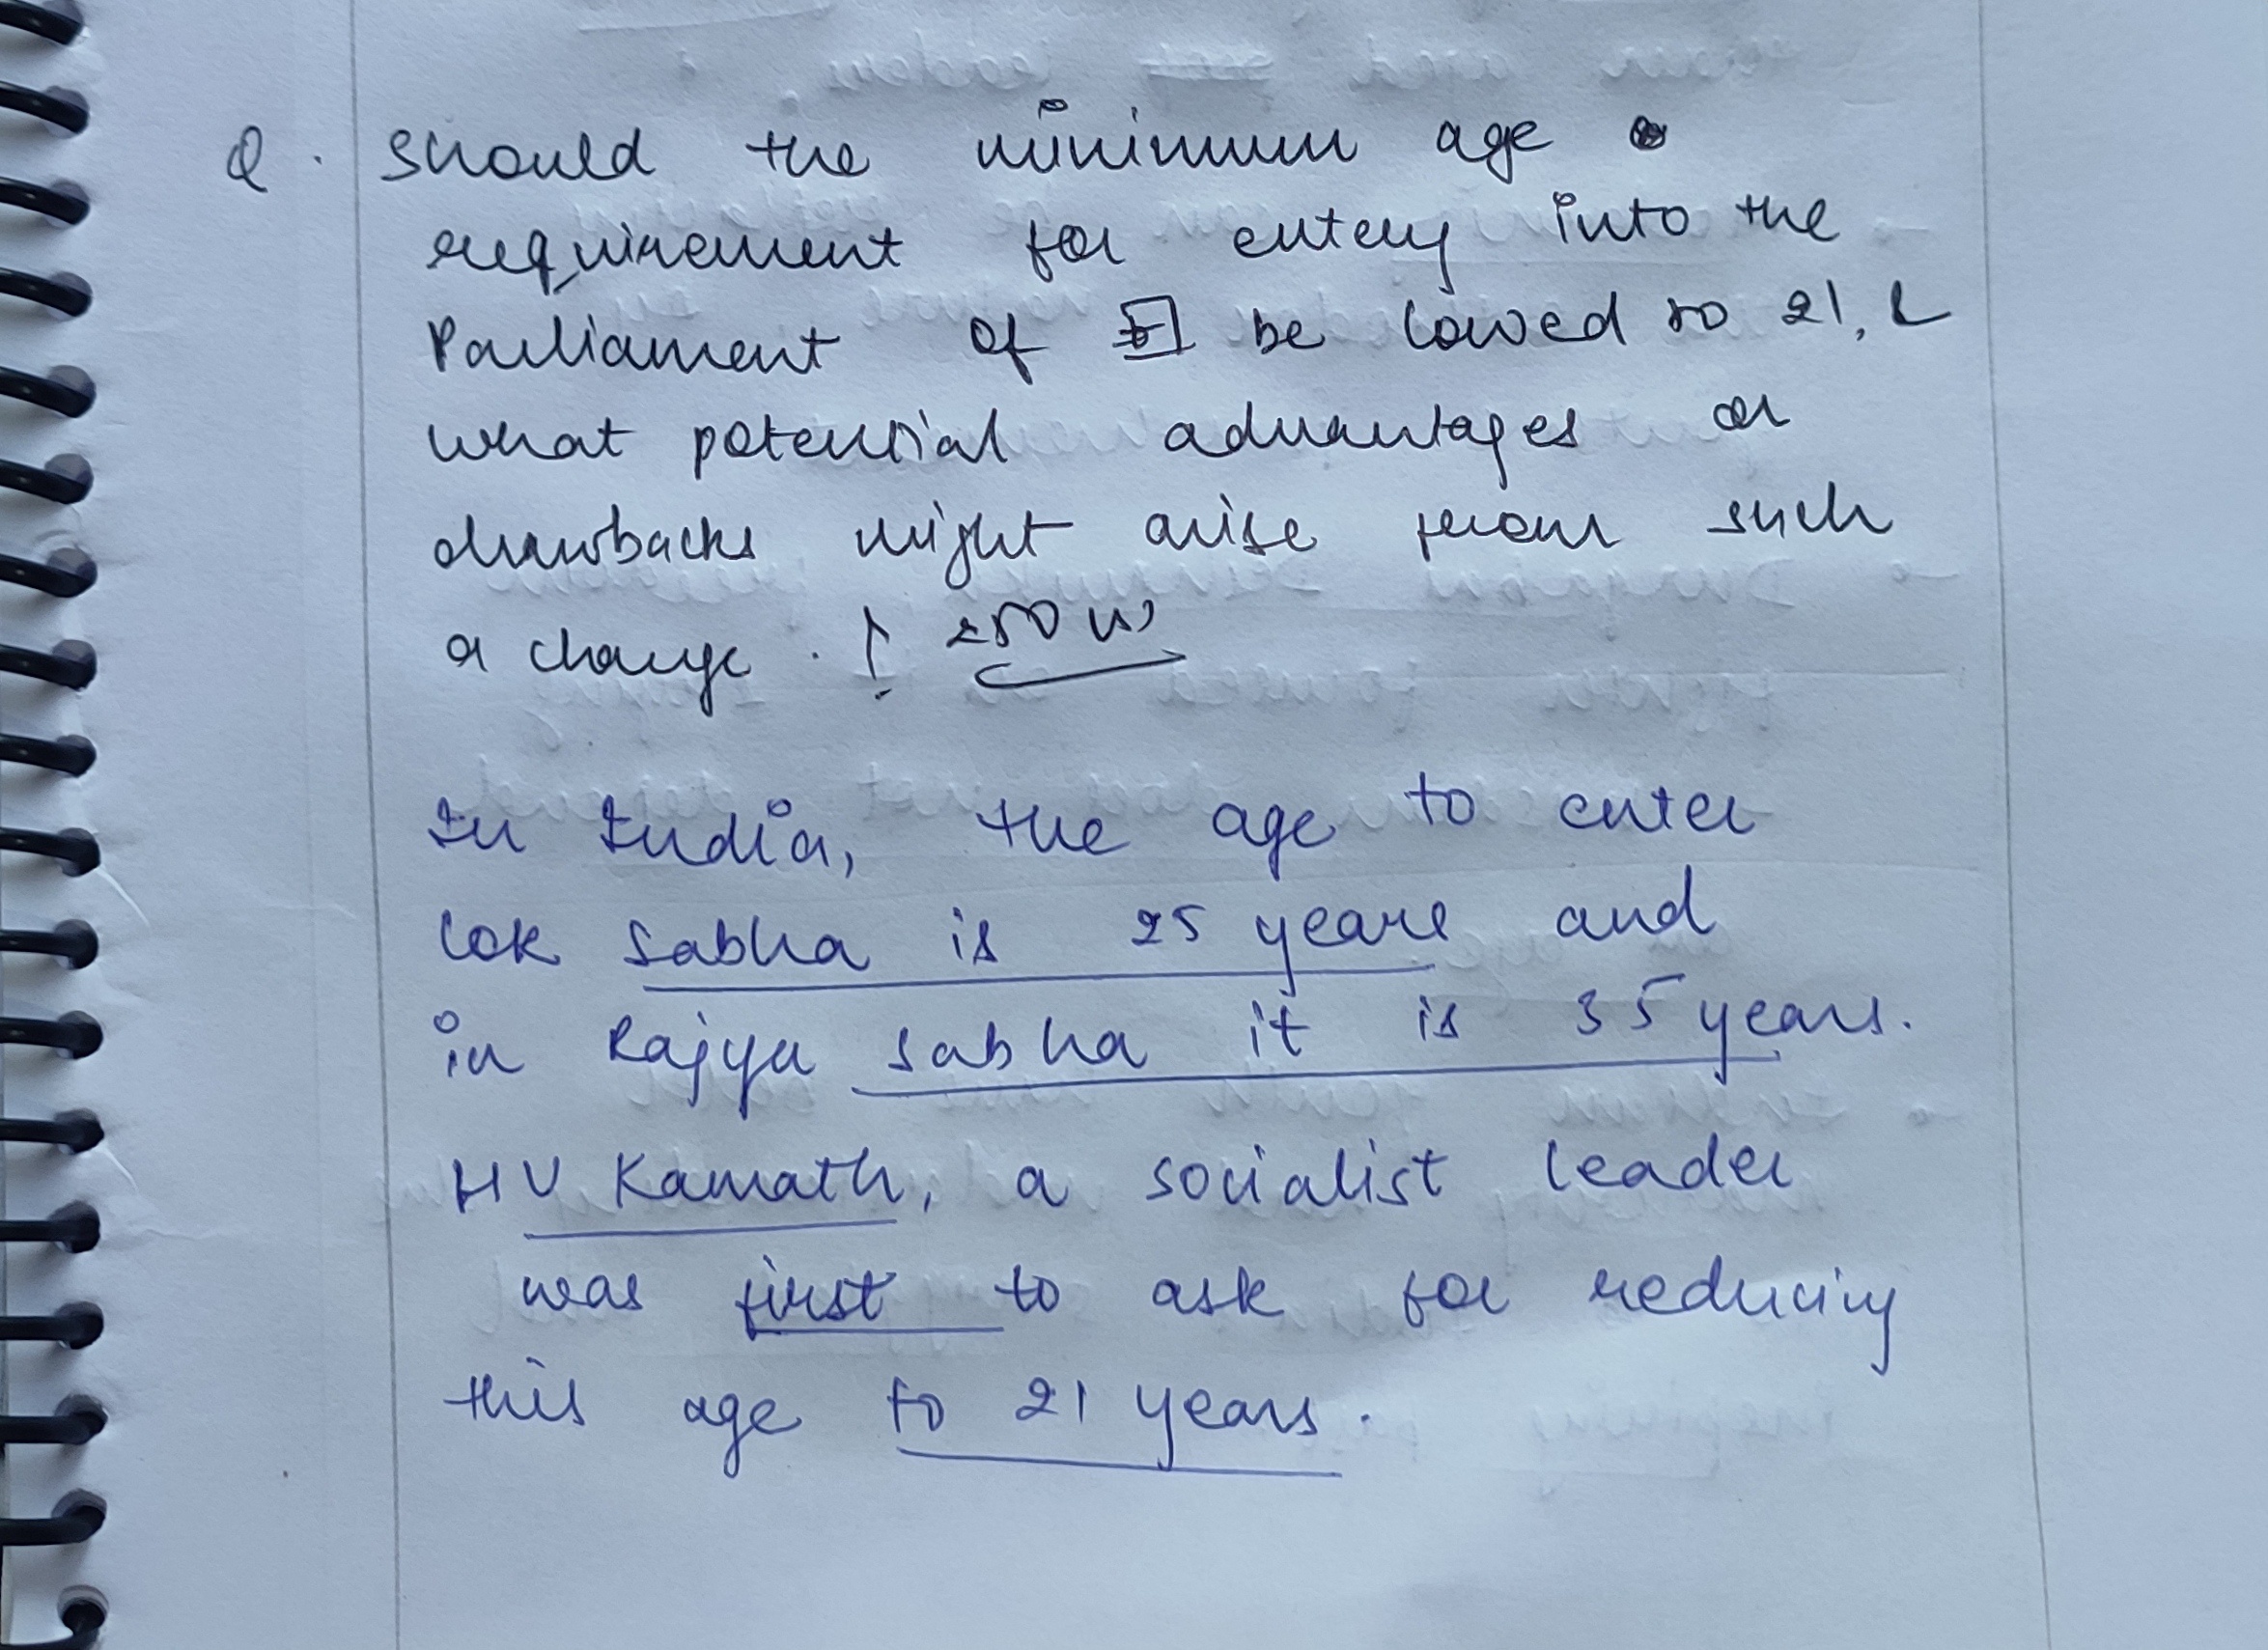 Q. Should the minimum age
requirement for entry into the
Parliament of be lowed to 21, &
what potential advantages or
drawbacks might arise from such
a change. ! 250 W
In India, the age to enter
Lok Sabha is 25 years and
in Rajya Sabha it is 35 years.
HV Kamath, a socialist leader
was first to ask for reducing
this age to 21 years.